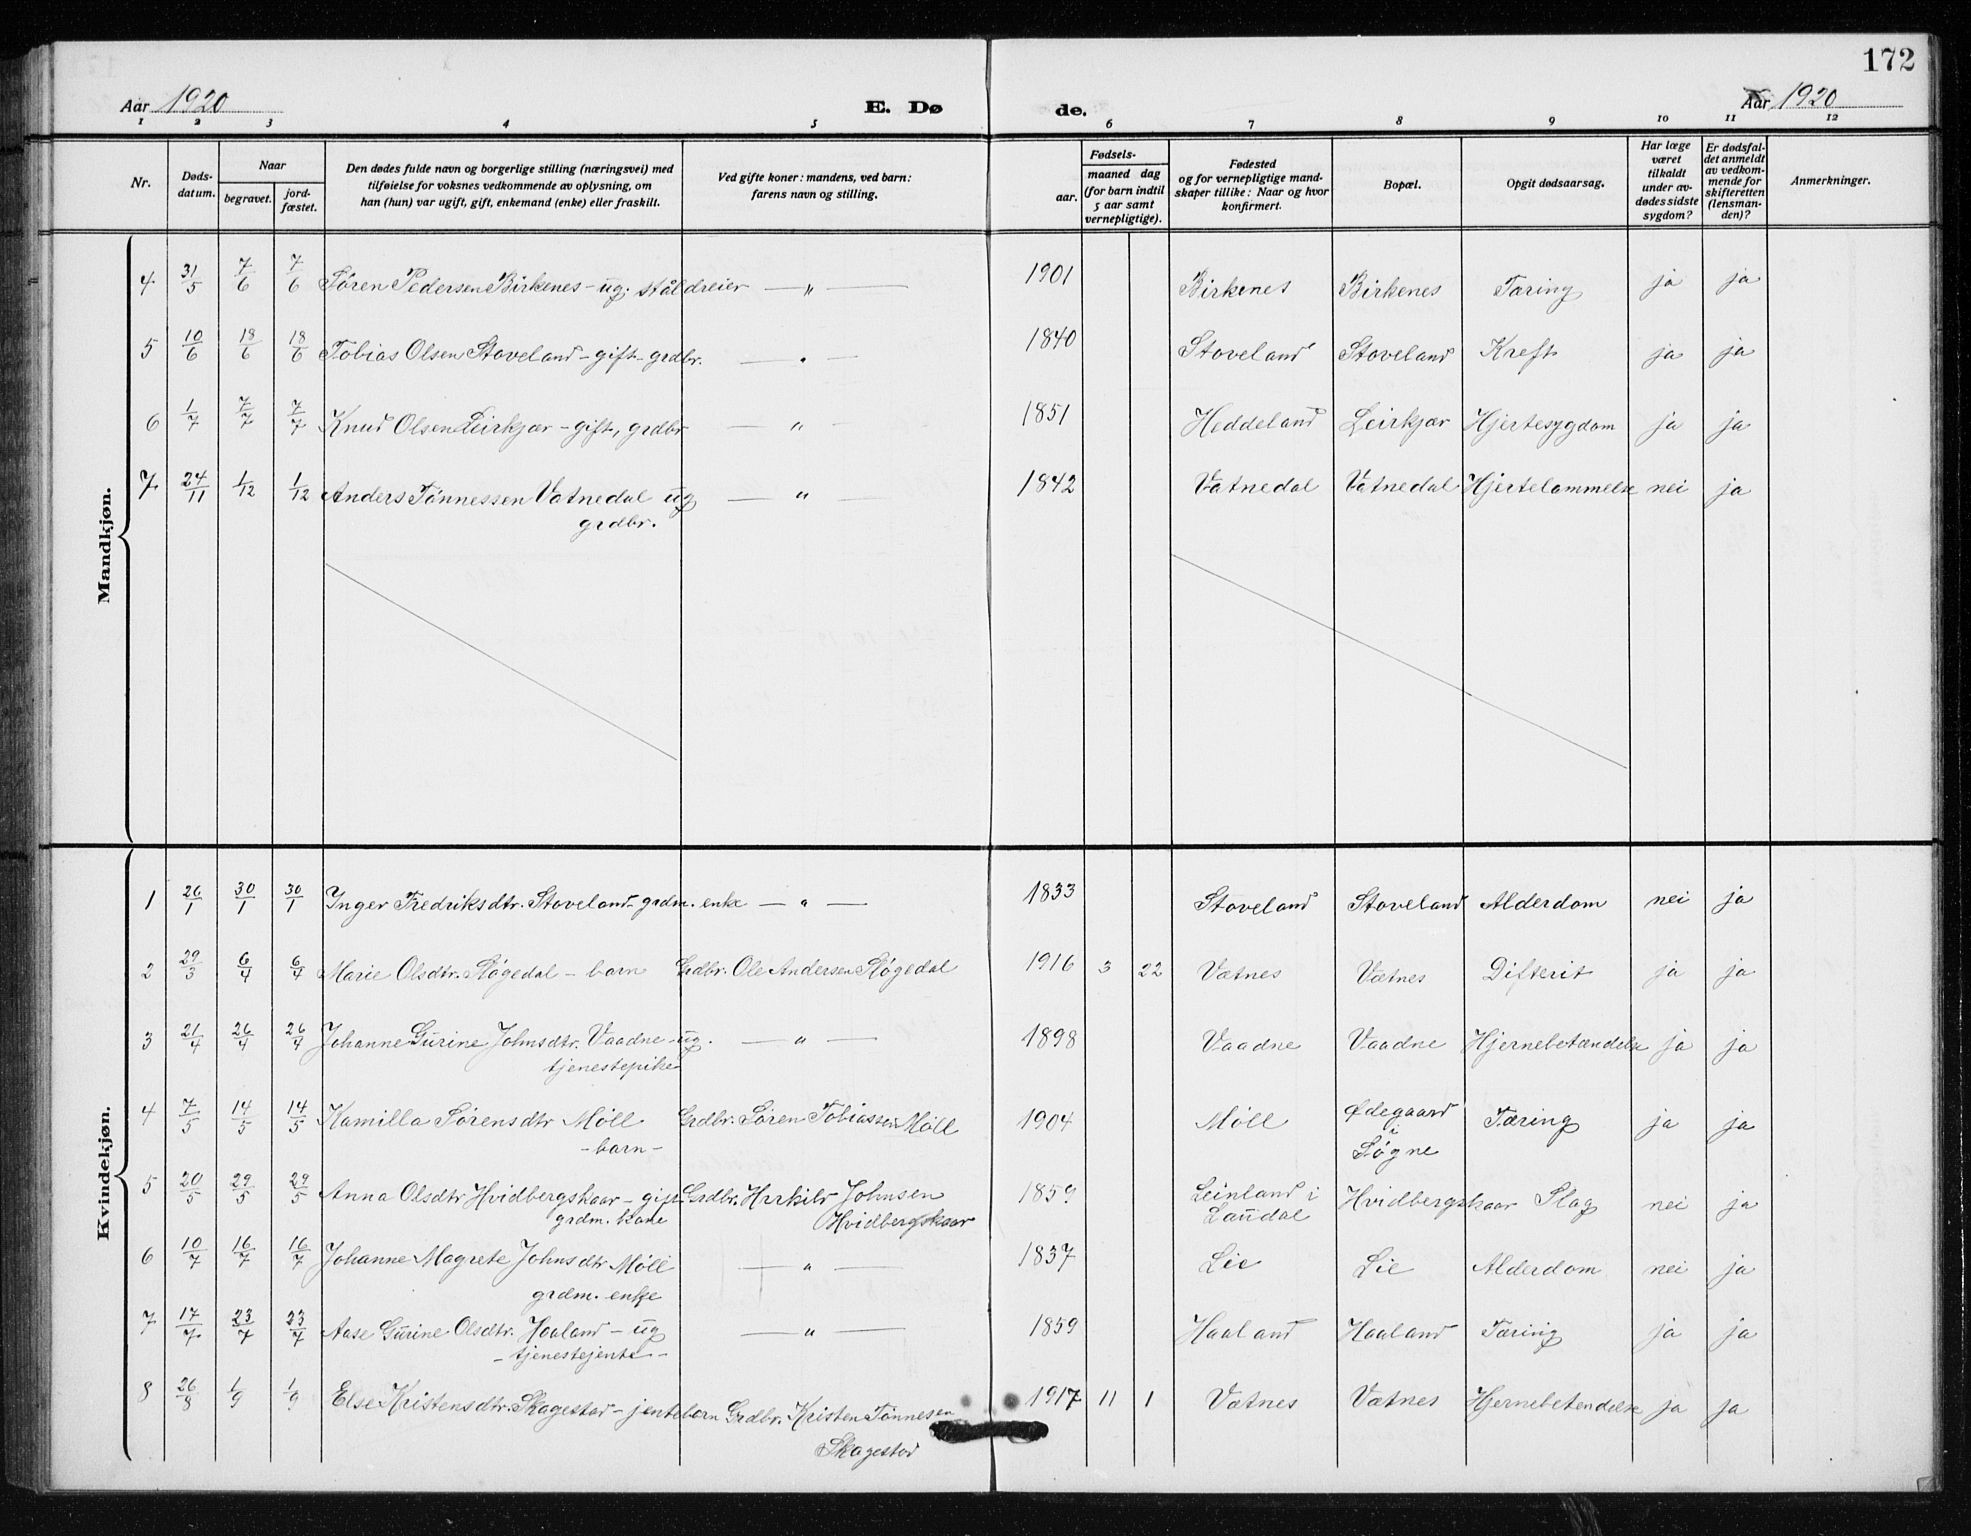 172
Aar 1920 E. Døde. Aar 1920
1 2 3 4 5 6 7 8 9 10 11 12
Nr.
Døds-
datum.
Naar
begravet.
jord-
fæstet.
Den dødes fulde navn og borgerlige stilling (næringsvei) med
tilføielse for voksnes vedkommende av oplysning, om
han (hun) var ugift, gift, enkemand (enke) eller fraskilt.
Ved gifte koner: mandens, ved barn:
farens navn og stilling.
Fødsels-
aar.
maaned dag
(for barn indtil
5 aar samt
vernepligtige).
Fødested
og for vernepligtige mand-
skaper tillike: Naar og hvor
konfirmert.
Bopæl.
Opgit dødsaarsag.
Har læge
været
tilkaldt
under av-
dødes sidste
sygdom?
Er dødsfal-
det anmeldt
av vedkom-
mende for
skifteretten
(lensman-
den)?
Anmerkninger.
Mandkjøn.
4 31/5 7/6 7/6 Søren Pedersen Birkenes - ug. ståldreier — " — 1901 Birkenes Birkenes Tæring ja ja
5 10/6 18/6 18/6 Tobias Olsen Stoveland - gift - grdbr. — " — 1840 Stoveland Stoveland Kreft ja ja
6 1/7 7/7 7/7 Knud Olsen Leirkjær - gift, grdbr — " — 1851 Heddeland Leirkjær Hjertesygdom ja ja
7 24/11 1/12 1/12 Anders Tönnessen Vatnedal ug — " — 1842 Vatnedal Vatnedal Hjertelammelse nei ja
grdbr.
Kvindekjøn.
1 26/1 30/1 30/1 Inger Fredriksdtr. Stoveland - grdm. enke — " — 1833 Stoveland Stoveland Alderdom nei ja
2 29/3 6/4 6/4 Marie Olsdtr. Støgedal - barn Grdbr. Ole Andersen Støgedal 1916 3 22 Vatnes Vatnes Difterit ja ja
3 21/4 26/4 26/4 Johanne Gurine Johnsdtr. Vaadne - ug. — " — 1898 Vaadne Vaadne Hjernebetændelse ja ja
tjenestepike
4 7/5 14/5 14/5 Kamilla Sörensdtr Möll Grdbr. Sören Tobiassen Möll 1904 Möll Ødegaard i Søgne Tæring ja ja
- barn -
5 20/5 29/5 29/5 Anna Olsdtr Hvidbergskaar - gift Grdbr. Herkilv Johnsen 1859 Leinland i Laudal Hvidbergskaar Slag nei ja
grdm. kone Hvidbergskaar
6 10/7 16/7 16/7 Johanne Magrete Johnsdtr Möll — " — 1837 Lie Lie Alderdom nei ja
grdm. enke
7 17/7 23/7 23/7 Aase Gurine Olsdtr. Haaland - ug — " — 1859 Haaland Haaland Tæring ja ja
- tjenestejente -
8 26/8 1/9 1/9 Else Kristensdtr. Skagestad - jentebarn Grdbr. Kristen Tönnesen 1917 11 1 Vatnes Vatnes Hjernebetendelse ja ja
Skagestad